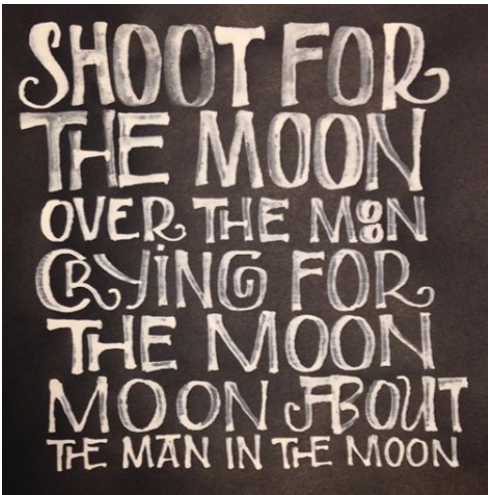 SHOOT FOR
THE MOON
OVER THE MOON
CRYiNG FOR
THE MOON
MOON ABOUT
THE MAN IN THE MOON